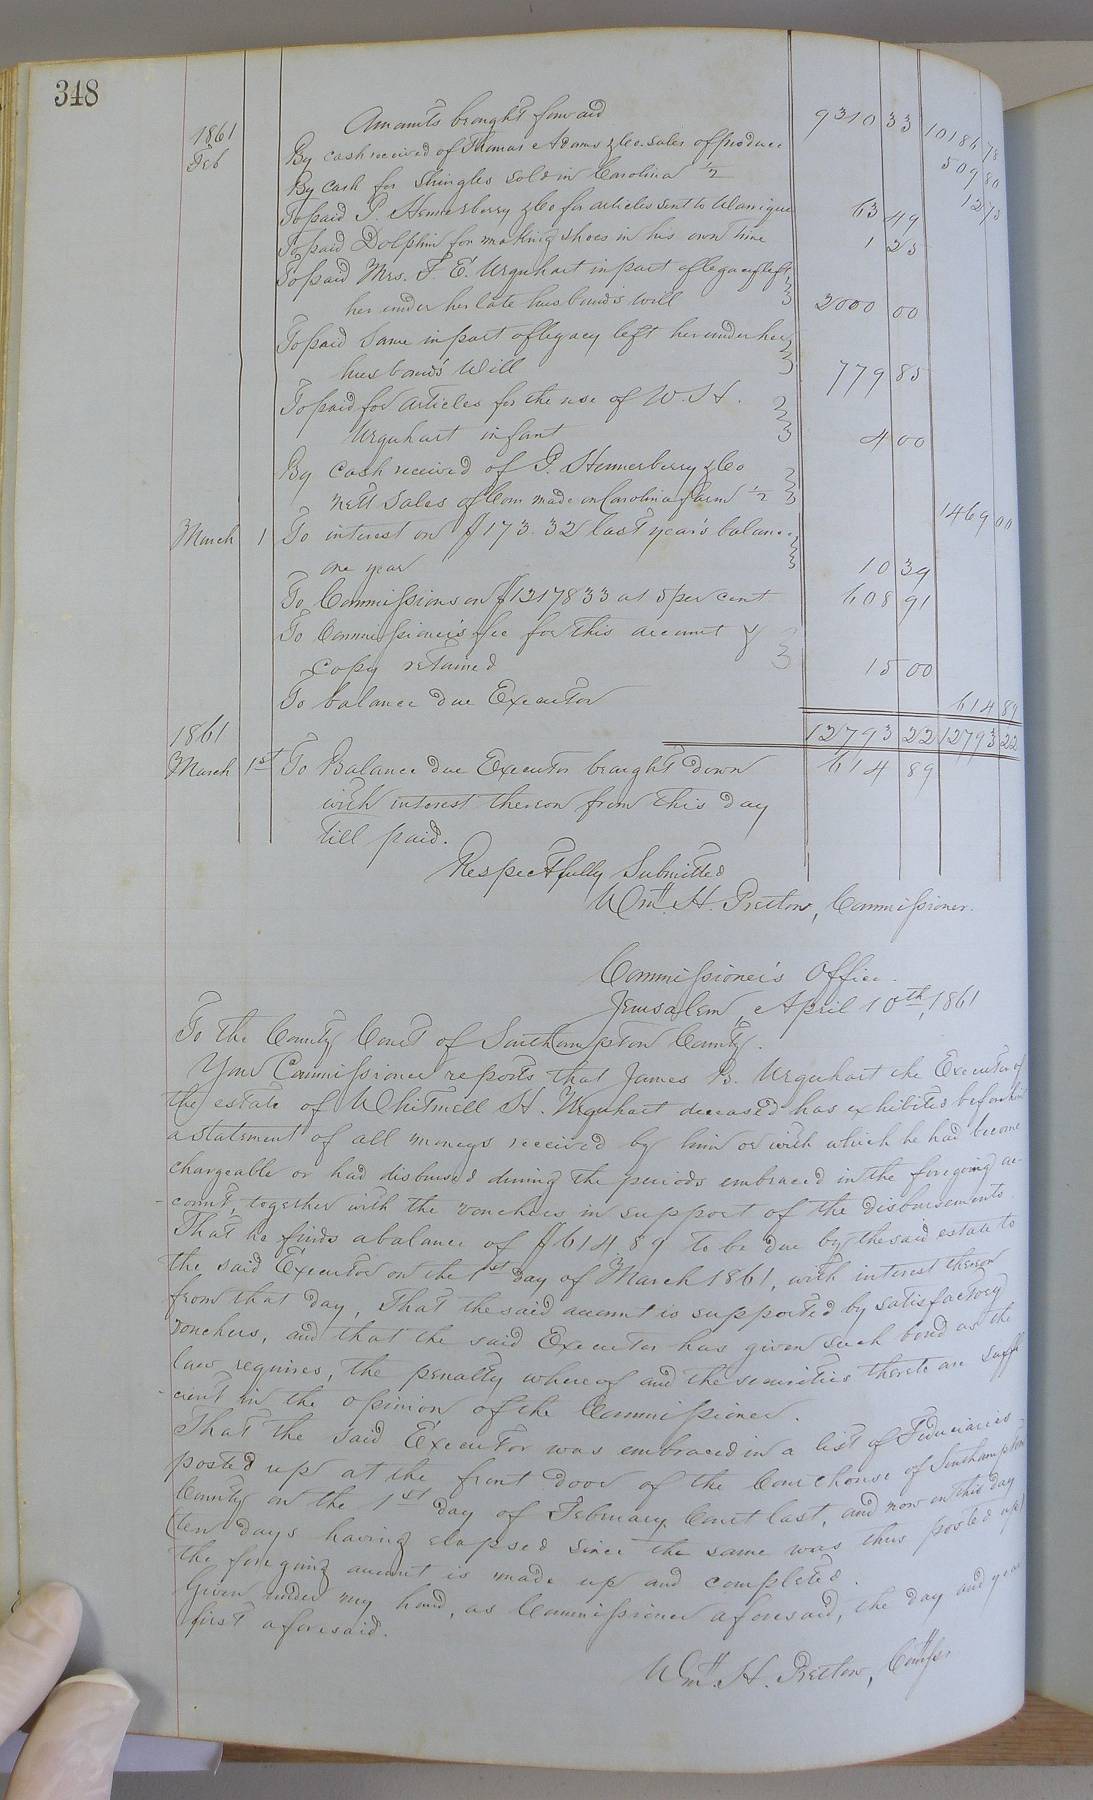 348
Amounts brought forward 9310 33 10186 78
1861
Feb By cash received of Thomas Adams & Co. sales of produce 509 80
By Cash for Shingles sold in Carolina 1/2 12 75
To paid P. Hennerberry & Co for articles sent to 63 49
To paid Dolphin for making shoes in his own time 1 25
To paid Mrs. F. E. Urquhart in part of legacy left
her under her late husband's will 2000 00
To paid Same in part of legacy left her under her
husband's Will 779 85
To paid for articles for the use of W. H.
Urquhart infant 4 00
By Cash received of P. Hennerberry & Co
nett Sales of Corn made on Carolina farm 1/2 1469 00
March 1 To interest on $173.32 last year's balance
one year 10 39
To Commissions on $12178 33 at 5 per cent 608 91
To Commissioner's fee for this account &
copy retained 15 00
To balance due Executor 614 89
12793 22 12793 22
1861
March 1st To Balance due Executor brought down 614 89
with interest thereon from this day
till paid.
Respectfully Submitted
Wm. H. Pretlow, Commissioner.
Commissioner's Office.
Jerusalem, April 10th, 1861
To the County Court of Southampton County.
Your Commissioner reports that James B. Urquhart the Executor of
the estate of Whitmell H. Urquhart deceased has exhibited before him
a statement of all moneys received by him or with which he had become
chargeable or had disbursed during the periods embraced in the foregoing ac-
-count, together with the vouchers in support of the disbursements.
That he finds a balance of $614.89 to be due by the said estate to
the said Executor on the 1st day of March 1861, with interest thereon
from that day, That the said account is supported by satisfactory
vouchers, and that the said Executor has given such bond as the
law requires, the penalty whereof and the securities thereto are suffi
-cient in the opinion of the Commissioner.
That the said Executor was embraced in a list of Fiduciaries
posted up at the front door of the Courthouse of Southampton
County on the 1st day of February Court last, and now on this day
(ten days having elapsed since the same was thus posted up)
the foregoing account is made up and completed.
Given under my hand, as Commissioner aforesaid, the day and year
first aforesaid.
Wm. H. Pretlow, Commsr